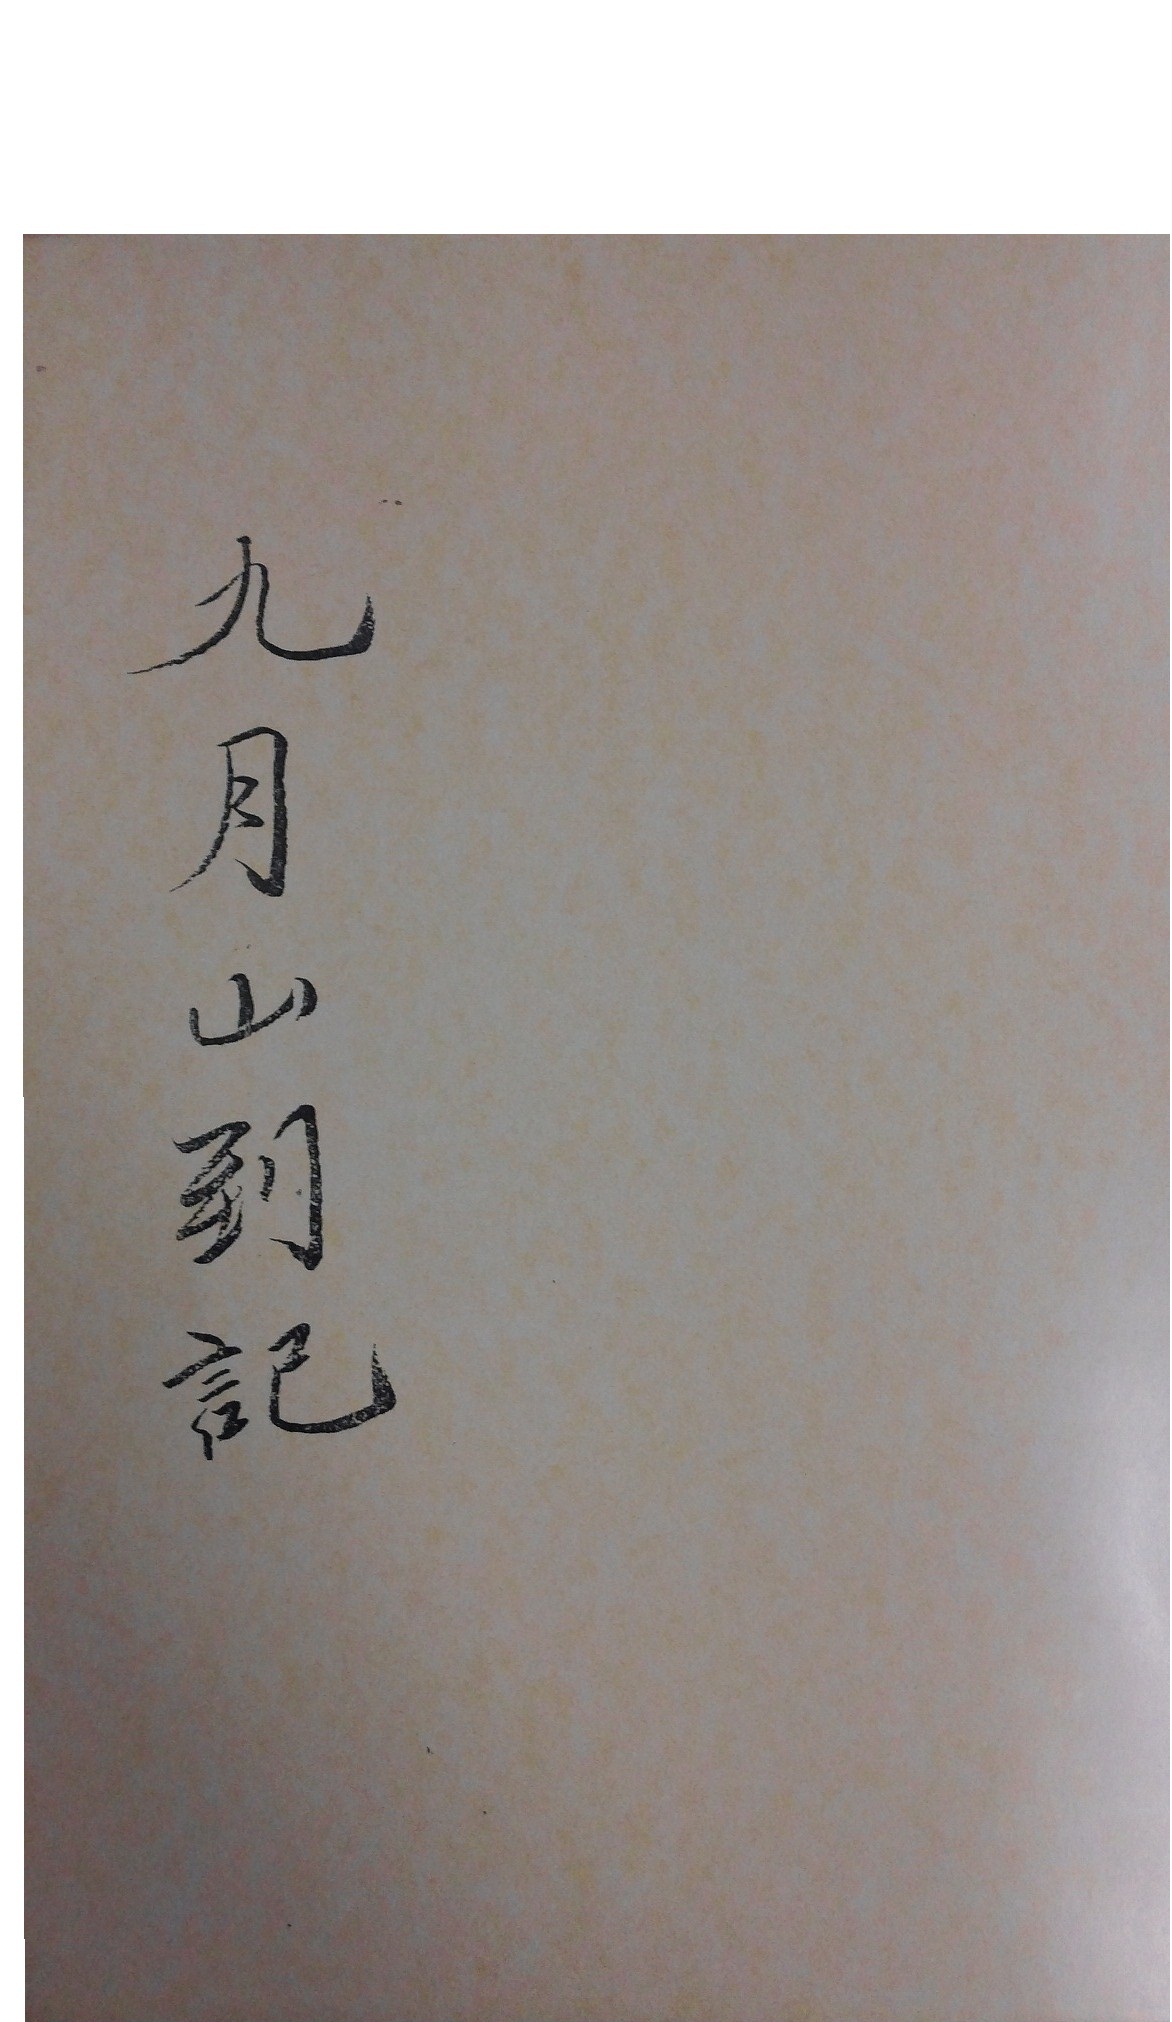 九月山到記